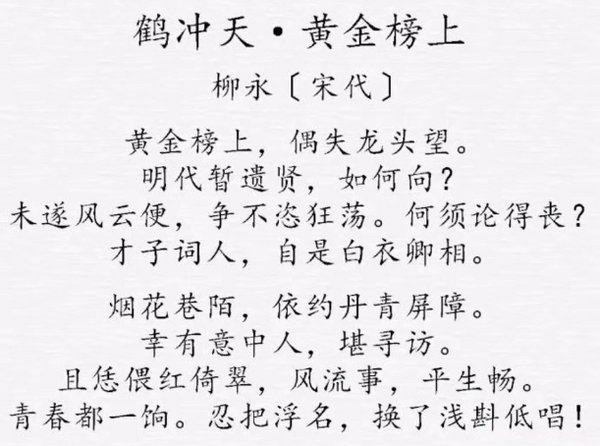 鹤冲天·黄金榜上
柳永〔宋代〕
黄金榜上，偶失龙头望。
明代暂遗贤，如何向？
未遂风云便，争不恣狂荡。何须论得丧？
才子词人，自是白衣卿相。
烟花巷陌，依约丹青屏障。
幸有意中人，堪寻访。
且恁偎红倚翠，风流事，平生畅。
青春都一饷。忍把浮名，换了浅斟低唱！